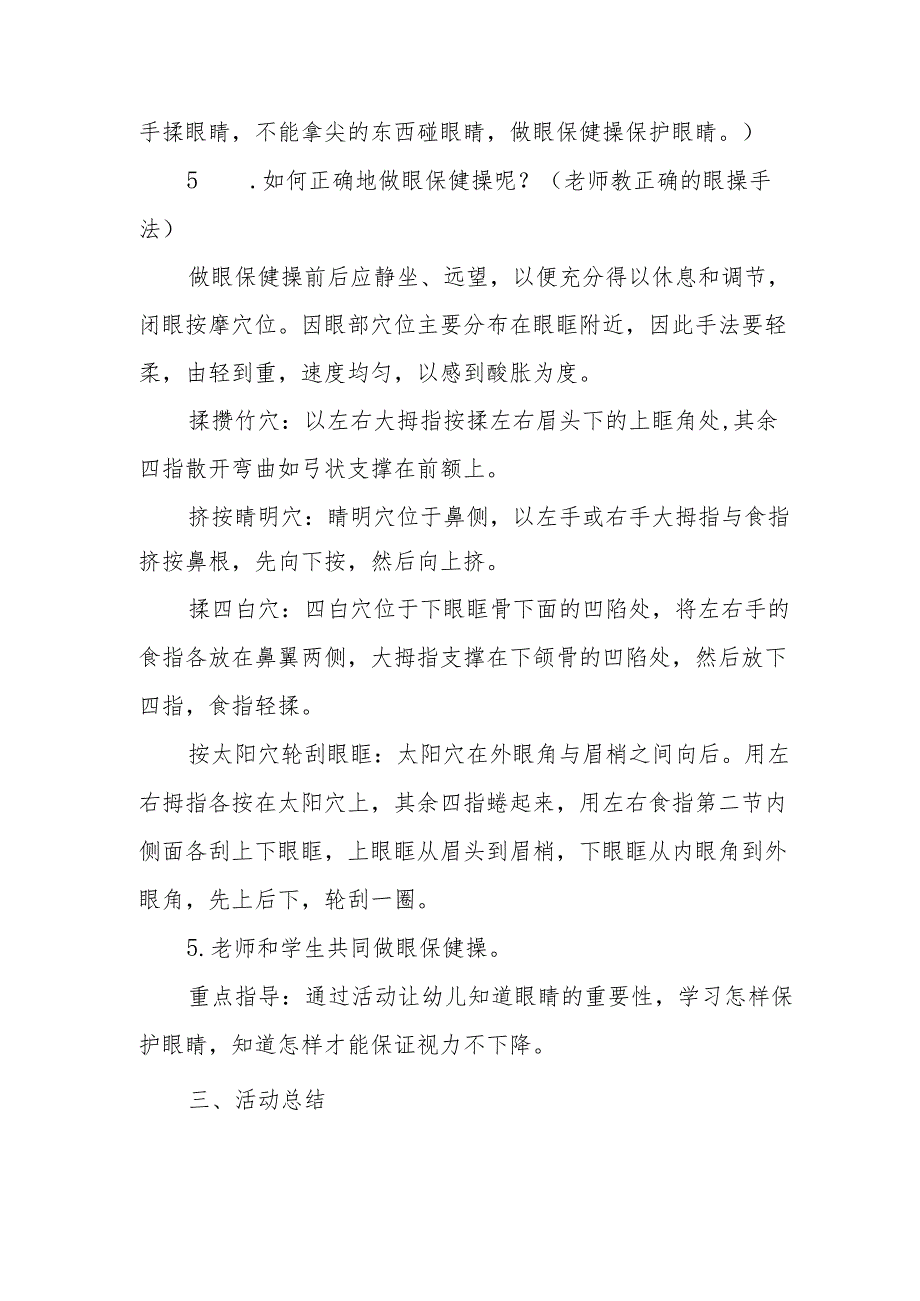 手揉眼睛，不能拿尖的东西碰眼睛，做眼保健操保护眼睛。）
5 .如何正确地做眼保健操呢？（老师教正确的眼操手
法）
做眼保健操前后应静坐、远望，以便充分得以休息和调节，
闭眼按摩穴位。因眼部穴位主要分布在眼眶附近，因此手法要轻
柔，由轻到重，速度均匀，以感到酸胀为度。
揉攒竹穴：以左右大拇指按揉左右眉头下的上眶角处,其余
四指散开弯曲如弓状支撑在前额上。
挤按睛明穴：睛明穴位于鼻侧，以左手或右手大拇指与食指
挤按鼻根，先向下按，然后向上挤。
揉四白穴：四白穴位于下眼眶骨下面的凹陷处，将左右手的
食指各放在鼻翼两侧，大拇指支撑在下颌骨的凹陷处，然后放下
四指，食指轻揉。
按太阳穴轮刮眼眶：太阳穴在外眼角与眉梢之间向后。用左
右拇指各按在太阳穴上，其余四指蜷起来，用左右食指第二节内
侧面各刮上下眼眶，上眼眶从眉头到眉梢，下眼眶从内眼角到外
眼角，先上后下，轮刮一圈。
5.老师和学生共同做眼保健操。
重点指导：通过活动让幼儿知道眼睛的重要性，学习怎样保
护眼睛，知道怎样才能保证视力不下降。
三、活动总结